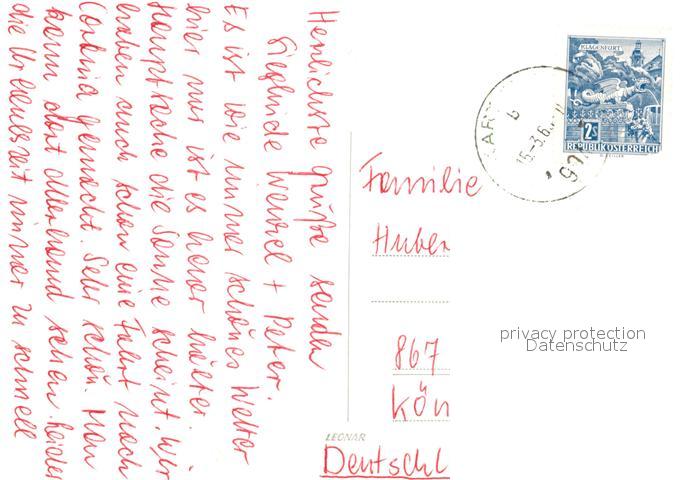 Herzlichste Grüße senden
Sieglinde Wenzel + Peter.
Es ist wie immer schönes Wetter
hier nur ist es heuer kälter.
Hauptsache die Sonne scheint. Wir
haben auch schon eine Fahrt nach
Cortina gemacht. Sehr schön. Man
kann dort allerhand sehen. Leider
die Urlaubszeit immer zu schnell
KLAGENFURT
2S
REPUBLIK ÖSTERREICH
b
15-3.6
Familie
Huber
867
Kön
Deutschl
LEONAR
privacy protection
Datenschutz